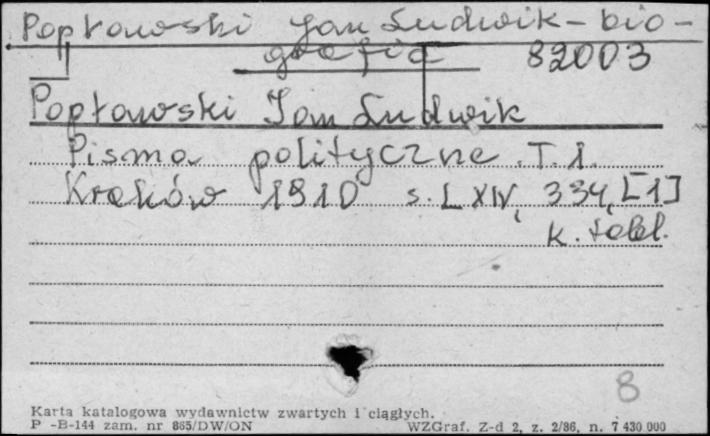 Popławski Jan Ludwik - bio-
grafia 82003
Popławski Jan Ludwik
Pisma polityczne. T. 1.
Kraków 1910 s. LXIV, 334, [1]
k. tabl.
8
Karta katalogowa wydawnictw zwartych i ciągłych.
P -B-144 zam. nr 865/DW/ON WZGraf. Z-d 2, z. 2/86, n. 7 430 000